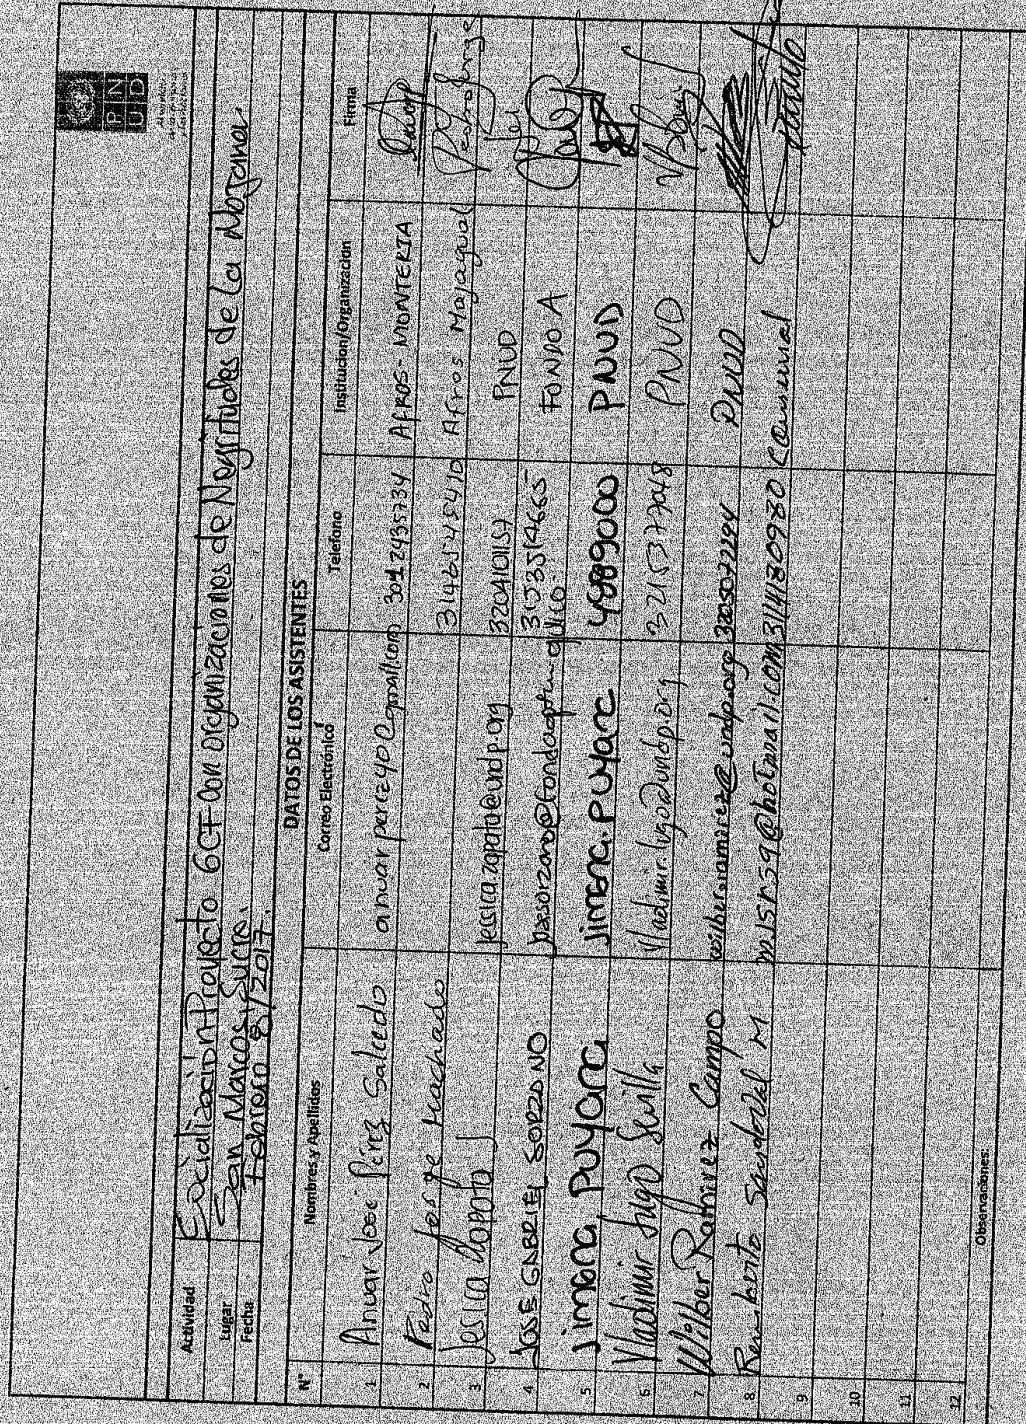 PNUD
Actividad Socialización Proyecto GCF con organizaciones de Negritudes de La Mojana.
Lugar San Marcos, Sucre.
Fecha Febrero 8/2017.
DATOS DE LOS ASISTENTES
N° Nombres y Apellidos Correo Electrónico Telefono Institucion/Organizacion Firma
1 Anuar José Pérez Salcedo anuarperez40@gmail.com AFROS-MONTERIA
2 Pedro Jorge Machado Afros Majagual
3 Jesica Zapata jessica.zapata@undp.org 3204101157 PNUD
4 JOSE GABRIEL SORZANO FONDO A
5 Jimena Puyana Jimena.Puyana 4889000 PNUD
6 Vladimir Lugo Sevilla Vladimir.lugo@undp.org PNUD
7 Wilber Ramirez Campo wilber.ramirez@undp.org PNUD
8 Remberto Sandoval M 3114180980
9
10
11
12
Observaciones: